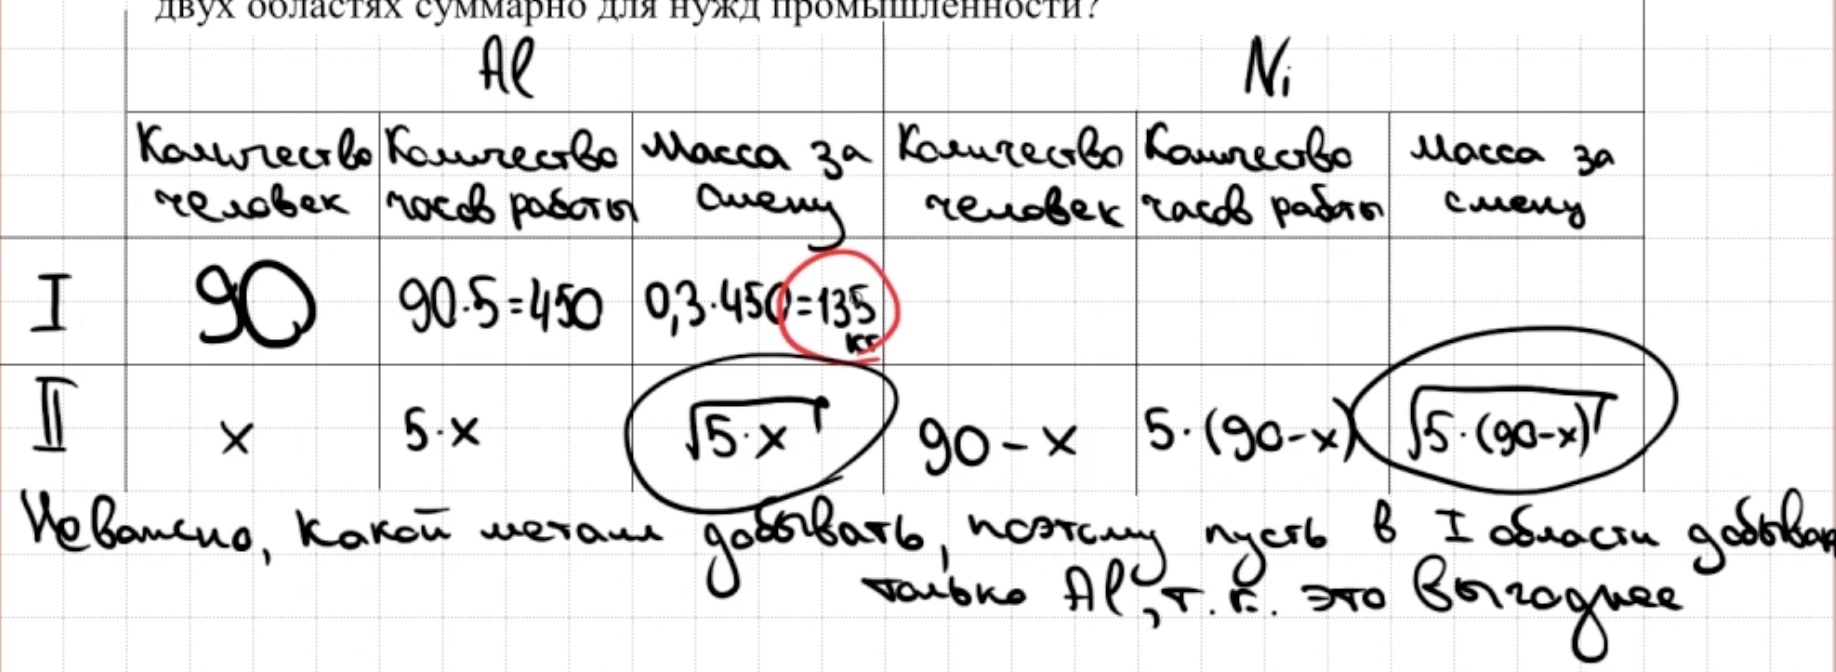 двух областях суммарно для нужд промышленности?
Al Ni
Количество человек Количество часов работы Масса за смену Количество человек Количество часов работы Масса за смену
I 90 90·5=450 0,3·450=135 кг
II x 5·x √5·x 90-x 5·(90-x) √5·(90-x)
Неважно, какой металл добывать, поэтому пусть в I области добывают
только Al, т.к. это выгоднее